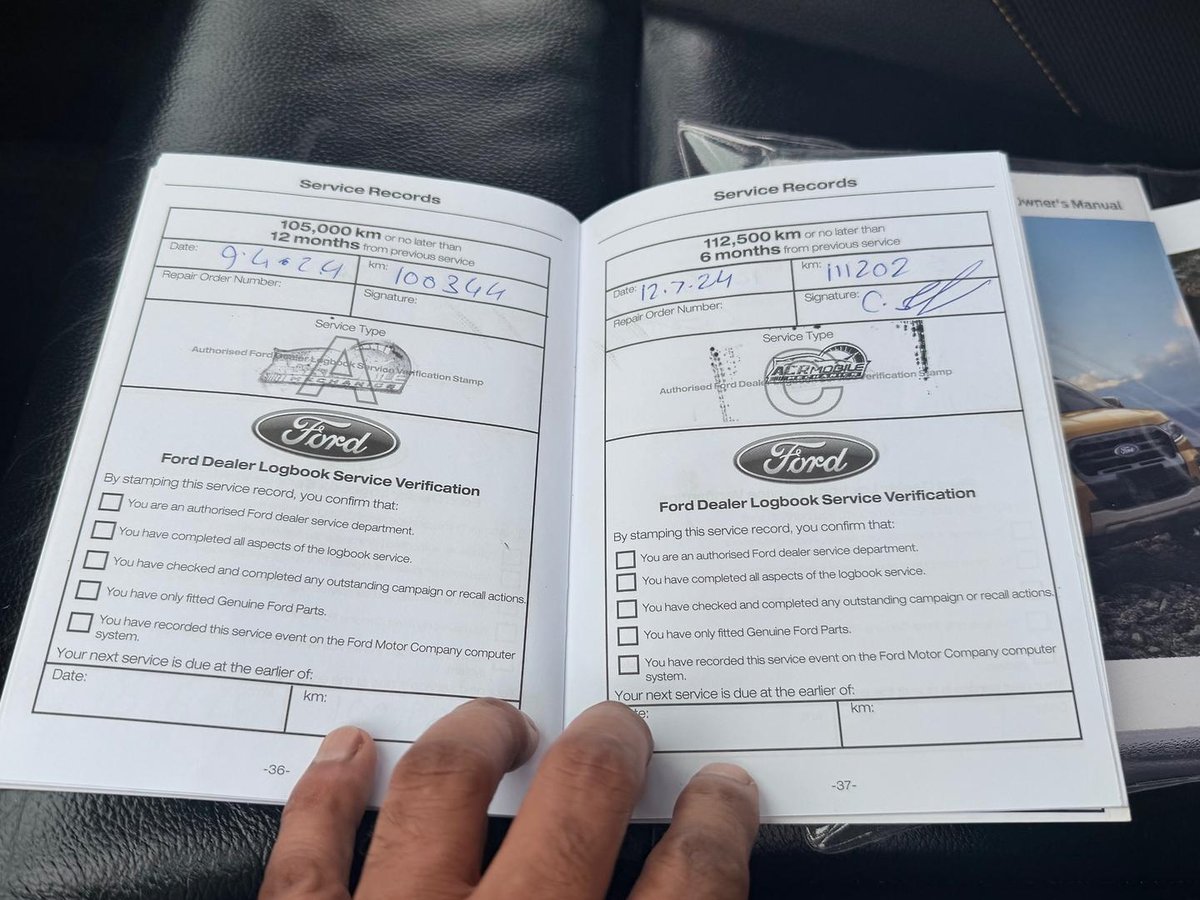 Service Records
105,000 km or no later than
12 months from previous service
Date: 9.4.24
km: 100344
Repair Order Number:
Signature:
Service Type
A
Authorised Ford Dealer Logbook Service Verification Stamp
Ford
Ford Dealer Logbook Service Verification
By stamping this service record, you confirm that:
You are an authorised Ford dealer service department.
You have completed all aspects of the logbook service.
You have checked and completed any outstanding campaign or recall actions.
You have only fitted Genuine Ford Parts.
You have recorded this service event on the Ford Motor Company computer
system.
Your next service is due at the earlier of:
Date:
km:
-36-
Service Records
112,500 km or no later than
6 months from previous service
Date: 12.7.24
km: 111202
Repair Order Number:
Signature: C.
Service Type
C
Authorised Ford Dealer Verification Stamp
Ford
Ford Dealer Logbook Service Verification
By stamping this service record, you confirm that:
You are an authorised Ford dealer service department.
You have completed all aspects of the logbook service.
You have checked and completed any outstanding campaign or recall actions.
You have only fitted Genuine Ford Parts.
You have recorded this service event on the Ford Motor Company computer
system.
Your next service is due at the earlier of:
km:
-37-
Owner's Manual
Ford